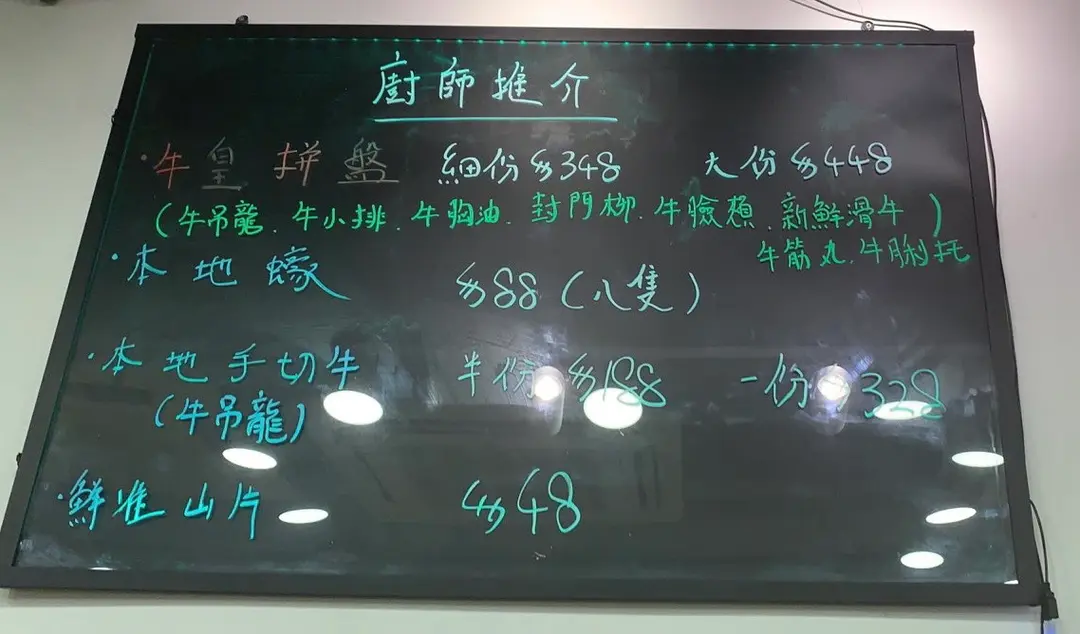 廚師推介
·牛皇拼盤 細份$348 大份$448
(牛吊龍.牛小排.牛胸油.封門柳.牛臉頰.新鮮滑牛)
牛筋丸.牛脷托
·本地蠔 $88(八隻)
·本地手切牛 半份$188 一份$328
(牛吊龍)
·鮮淮山片 $48